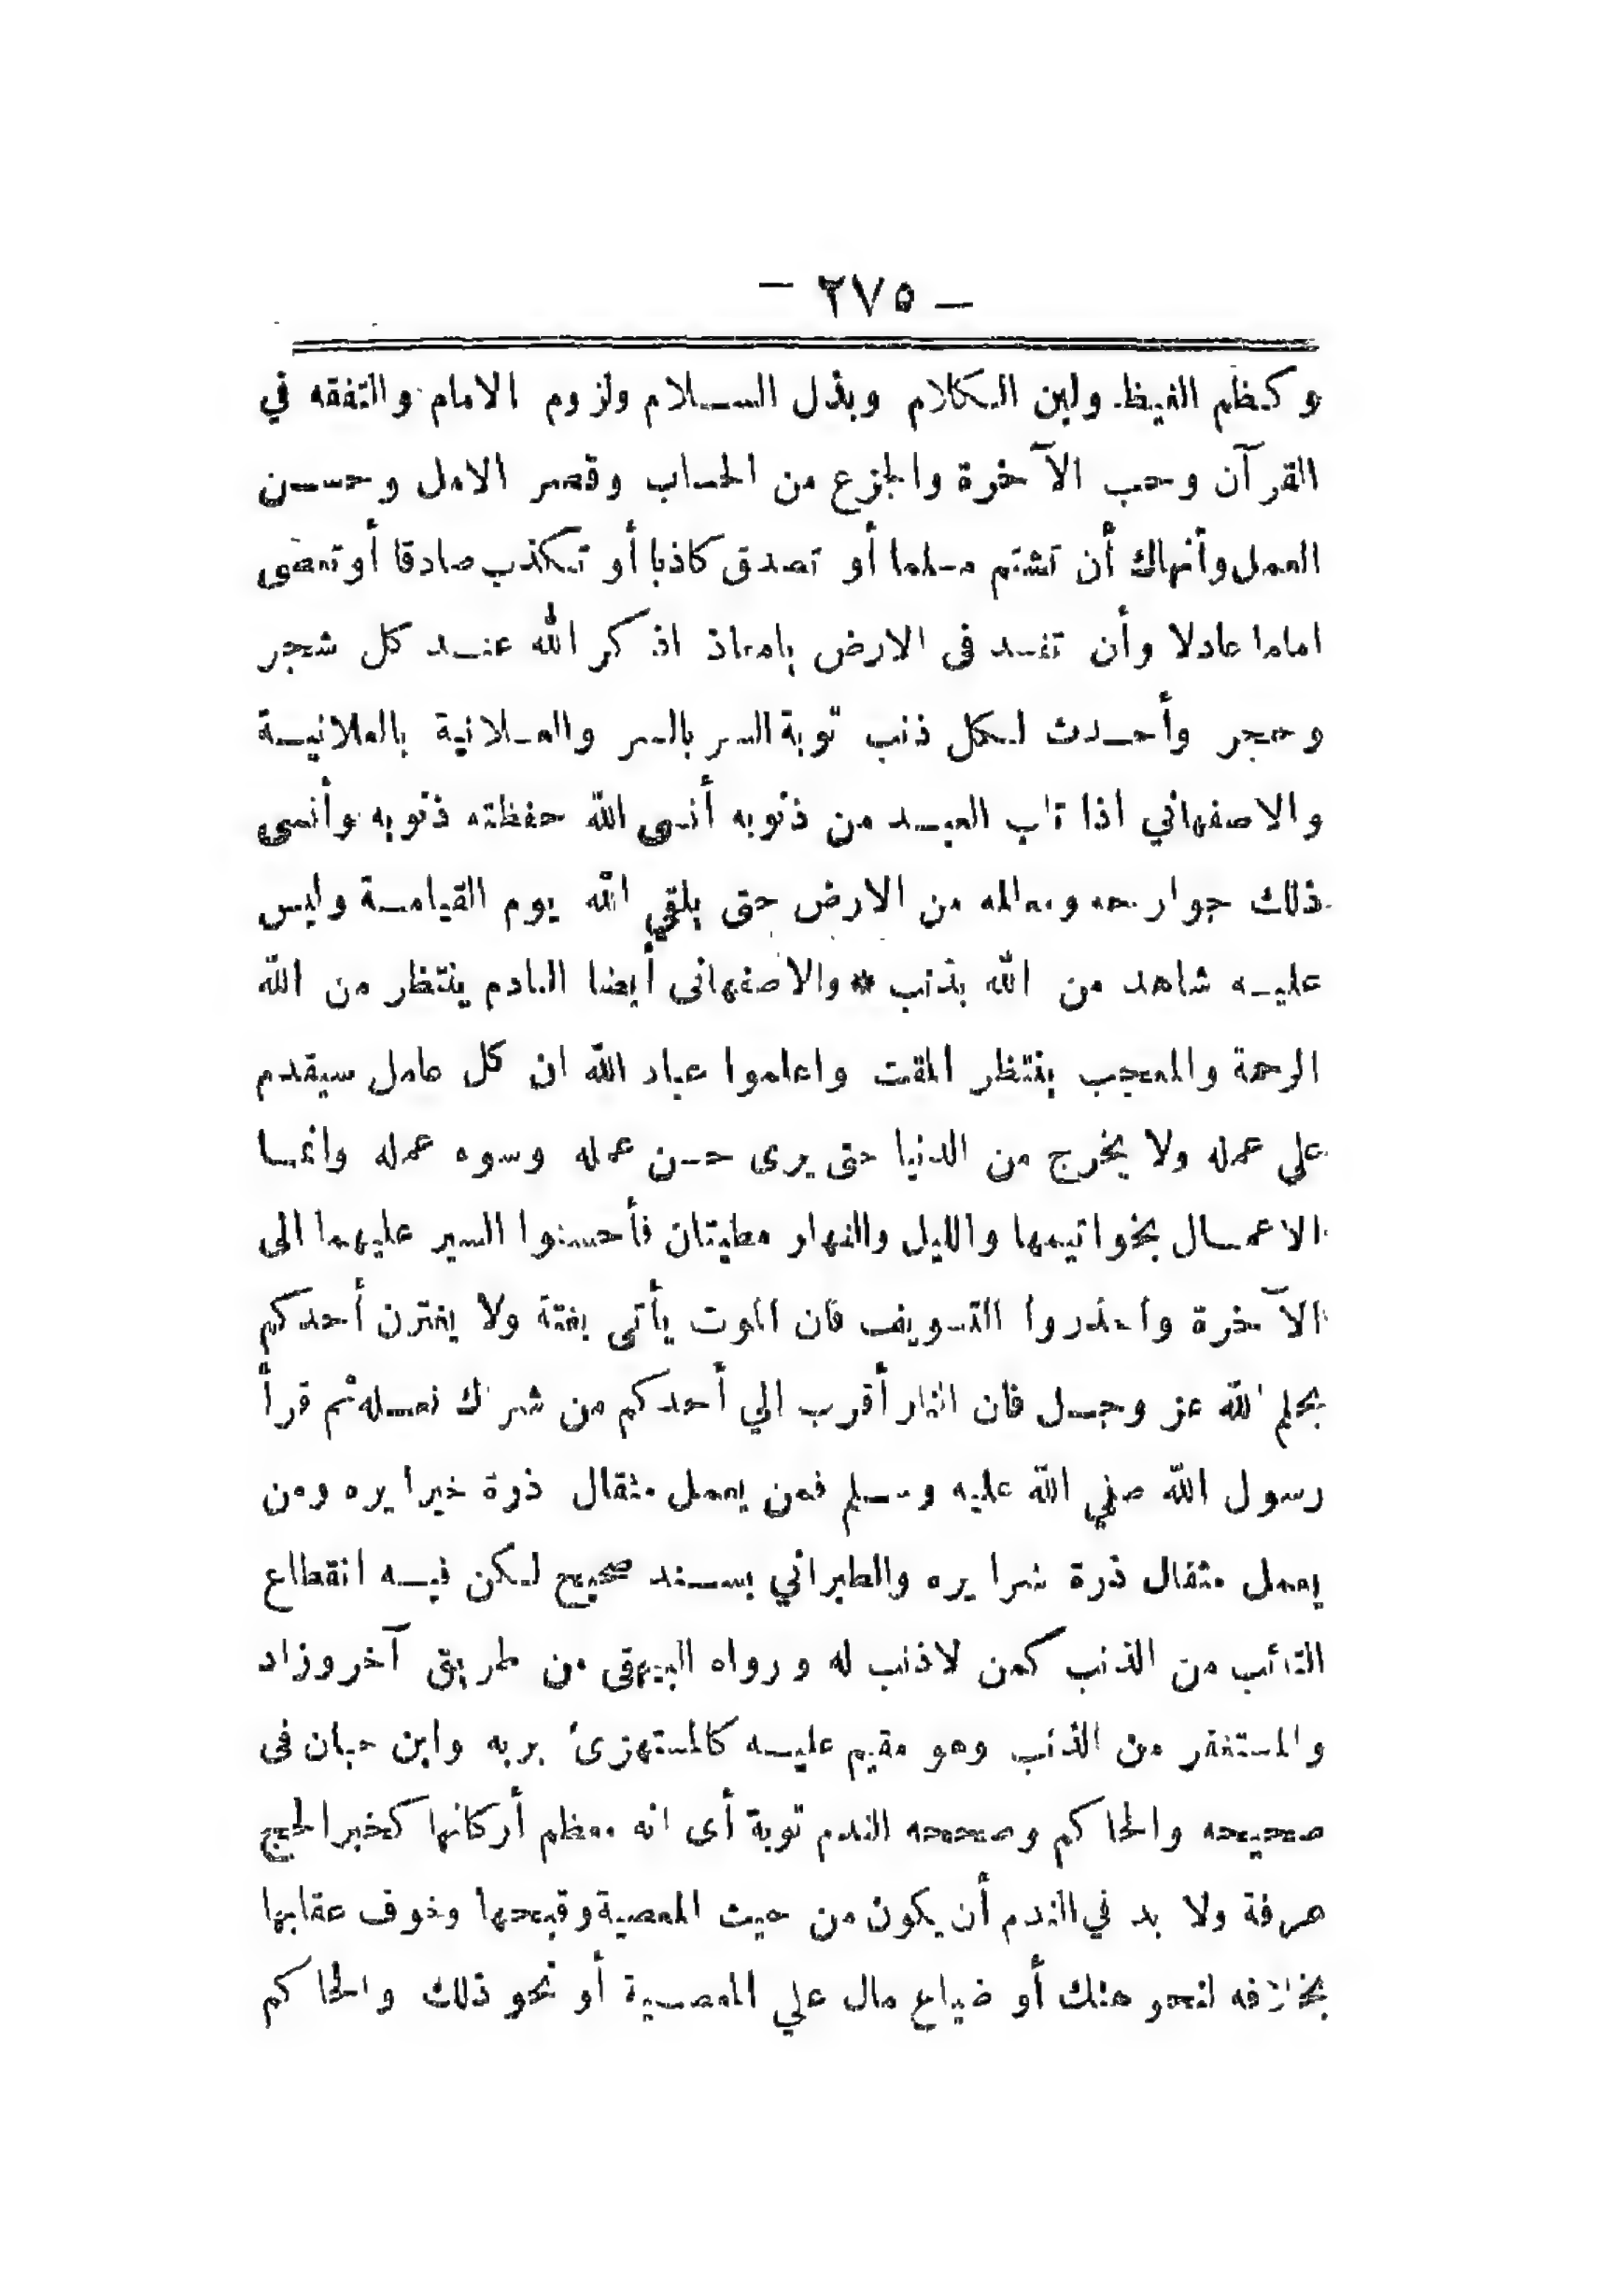 — ٢٧٥ —
وكظم الغيظ ولين الكلام وبذل السلام ولزوم الامام والتفقه في
القرآن وحب الآخرة والجزع من الحساب وقصر الامل وحسن
العمل وأنهاك أن تشتم مسلما أو تصدق كاذبا أو تكذب صادقا أو تعصى
اماما عادلا وأن تفسد فى الارض يامعاذ اذكر الله عند كل شجر
وحجر وأحدث لكل ذنب توبة السر بالسر والعلانية بالعلانية
والاصفهاني اذا تاب العبد من ذنوبه أنسى الله حفظته ذنوبه وأنسى
ذلك جوارحه ومعالمه من الارض حتى يلقي الله يوم القيامة وليس
عليه شاهد من الله بذنب * والاصفهانى أيضا النادم ينتظر من الله
الرحمة والمعجب ينتظر المقت واعلموا عباد الله ان كل عامل سيقدم
على عمله ولا يخرج من الدنيا حتى يرى حسن عمله وسوء عمله وانما
الاعمال بخواتيمها والليل والنهار مطيتان فأحسنوا السير عليهما الى
الآخرة واحذروا التسويف فان الموت يأتى بغتة ولا يغترن أحدكم
بحلم الله عز وجل فان النار أقرب الي أحدكم من شراك نعله ثم قرأ
رسول الله صلي الله عليه وسلم فمن يعمل مثقال ذرة خيرا يره ومن
يعمل مثقال ذرة شرا يره والطبراني بسند صحيح لكن فيه انقطاع
التائب من الذنب كمن لاذنب له ورواه البيهقى من طريق آخر وزاد
والمستغفر من الذنب وهو مقيم عليه كالمستهزئ بربه وابن حبان فى
صحيحه والحاكم وصححه الندم توبة أى انه معظم أركانها كخبر الحج
عرفة ولا بد في الندم أن يكون من حيث المعصية وقبحها وخوف عقابها
بخلافه لنحو هتك أو ضياع مال علي المعصية أو نحو ذلك والحاكم